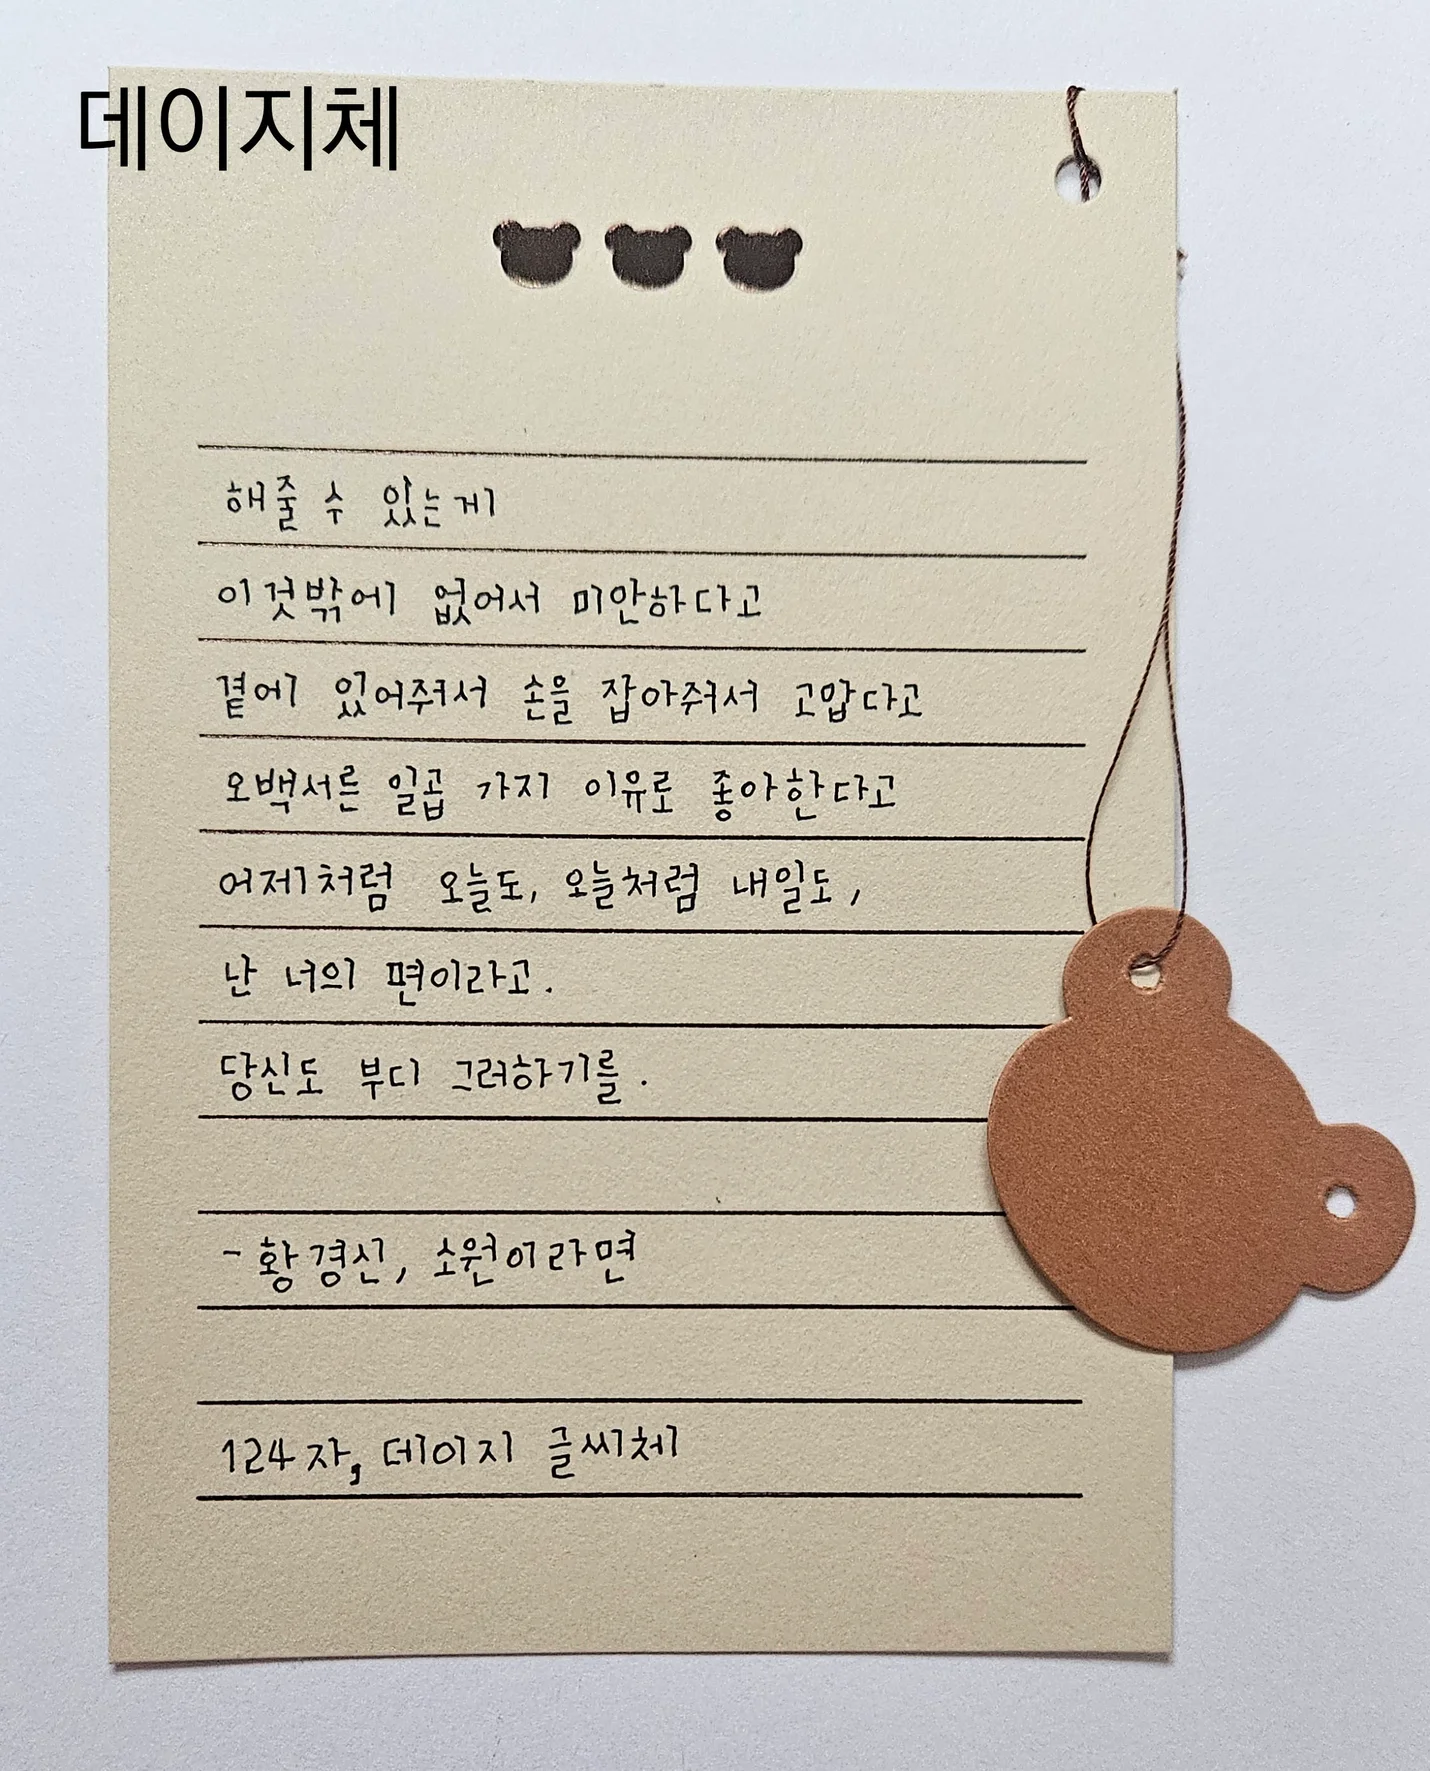 데이지체
해줄 수 있는게
이것밖에 없어서 미안하다고
곁에 있어줘서 손을 잡아줘서 고맙다고
오백서른 일곱 가지 이유로 좋아한다고
어제처럼 오늘도, 오늘처럼 내일도,
난 너의 편이라고.
당신도 부디 그러하기를.
- 황경신, 소원이라면
124자, 데이지 글씨체